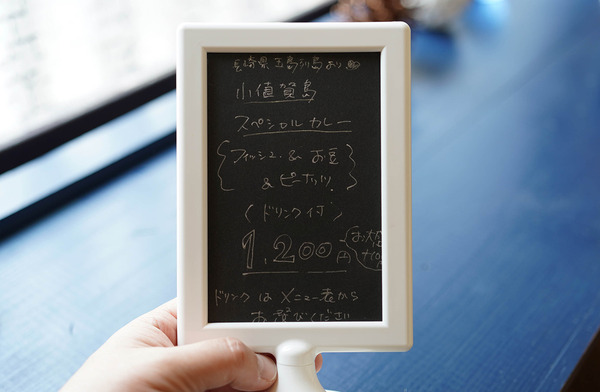 長崎県五島列島より
小値賀島
スペシャルカレー
フィッシュ & お豆
& ピーナッツ
(ドリンク付)
1,200円
ドリンクはメニュー表から
お選びください